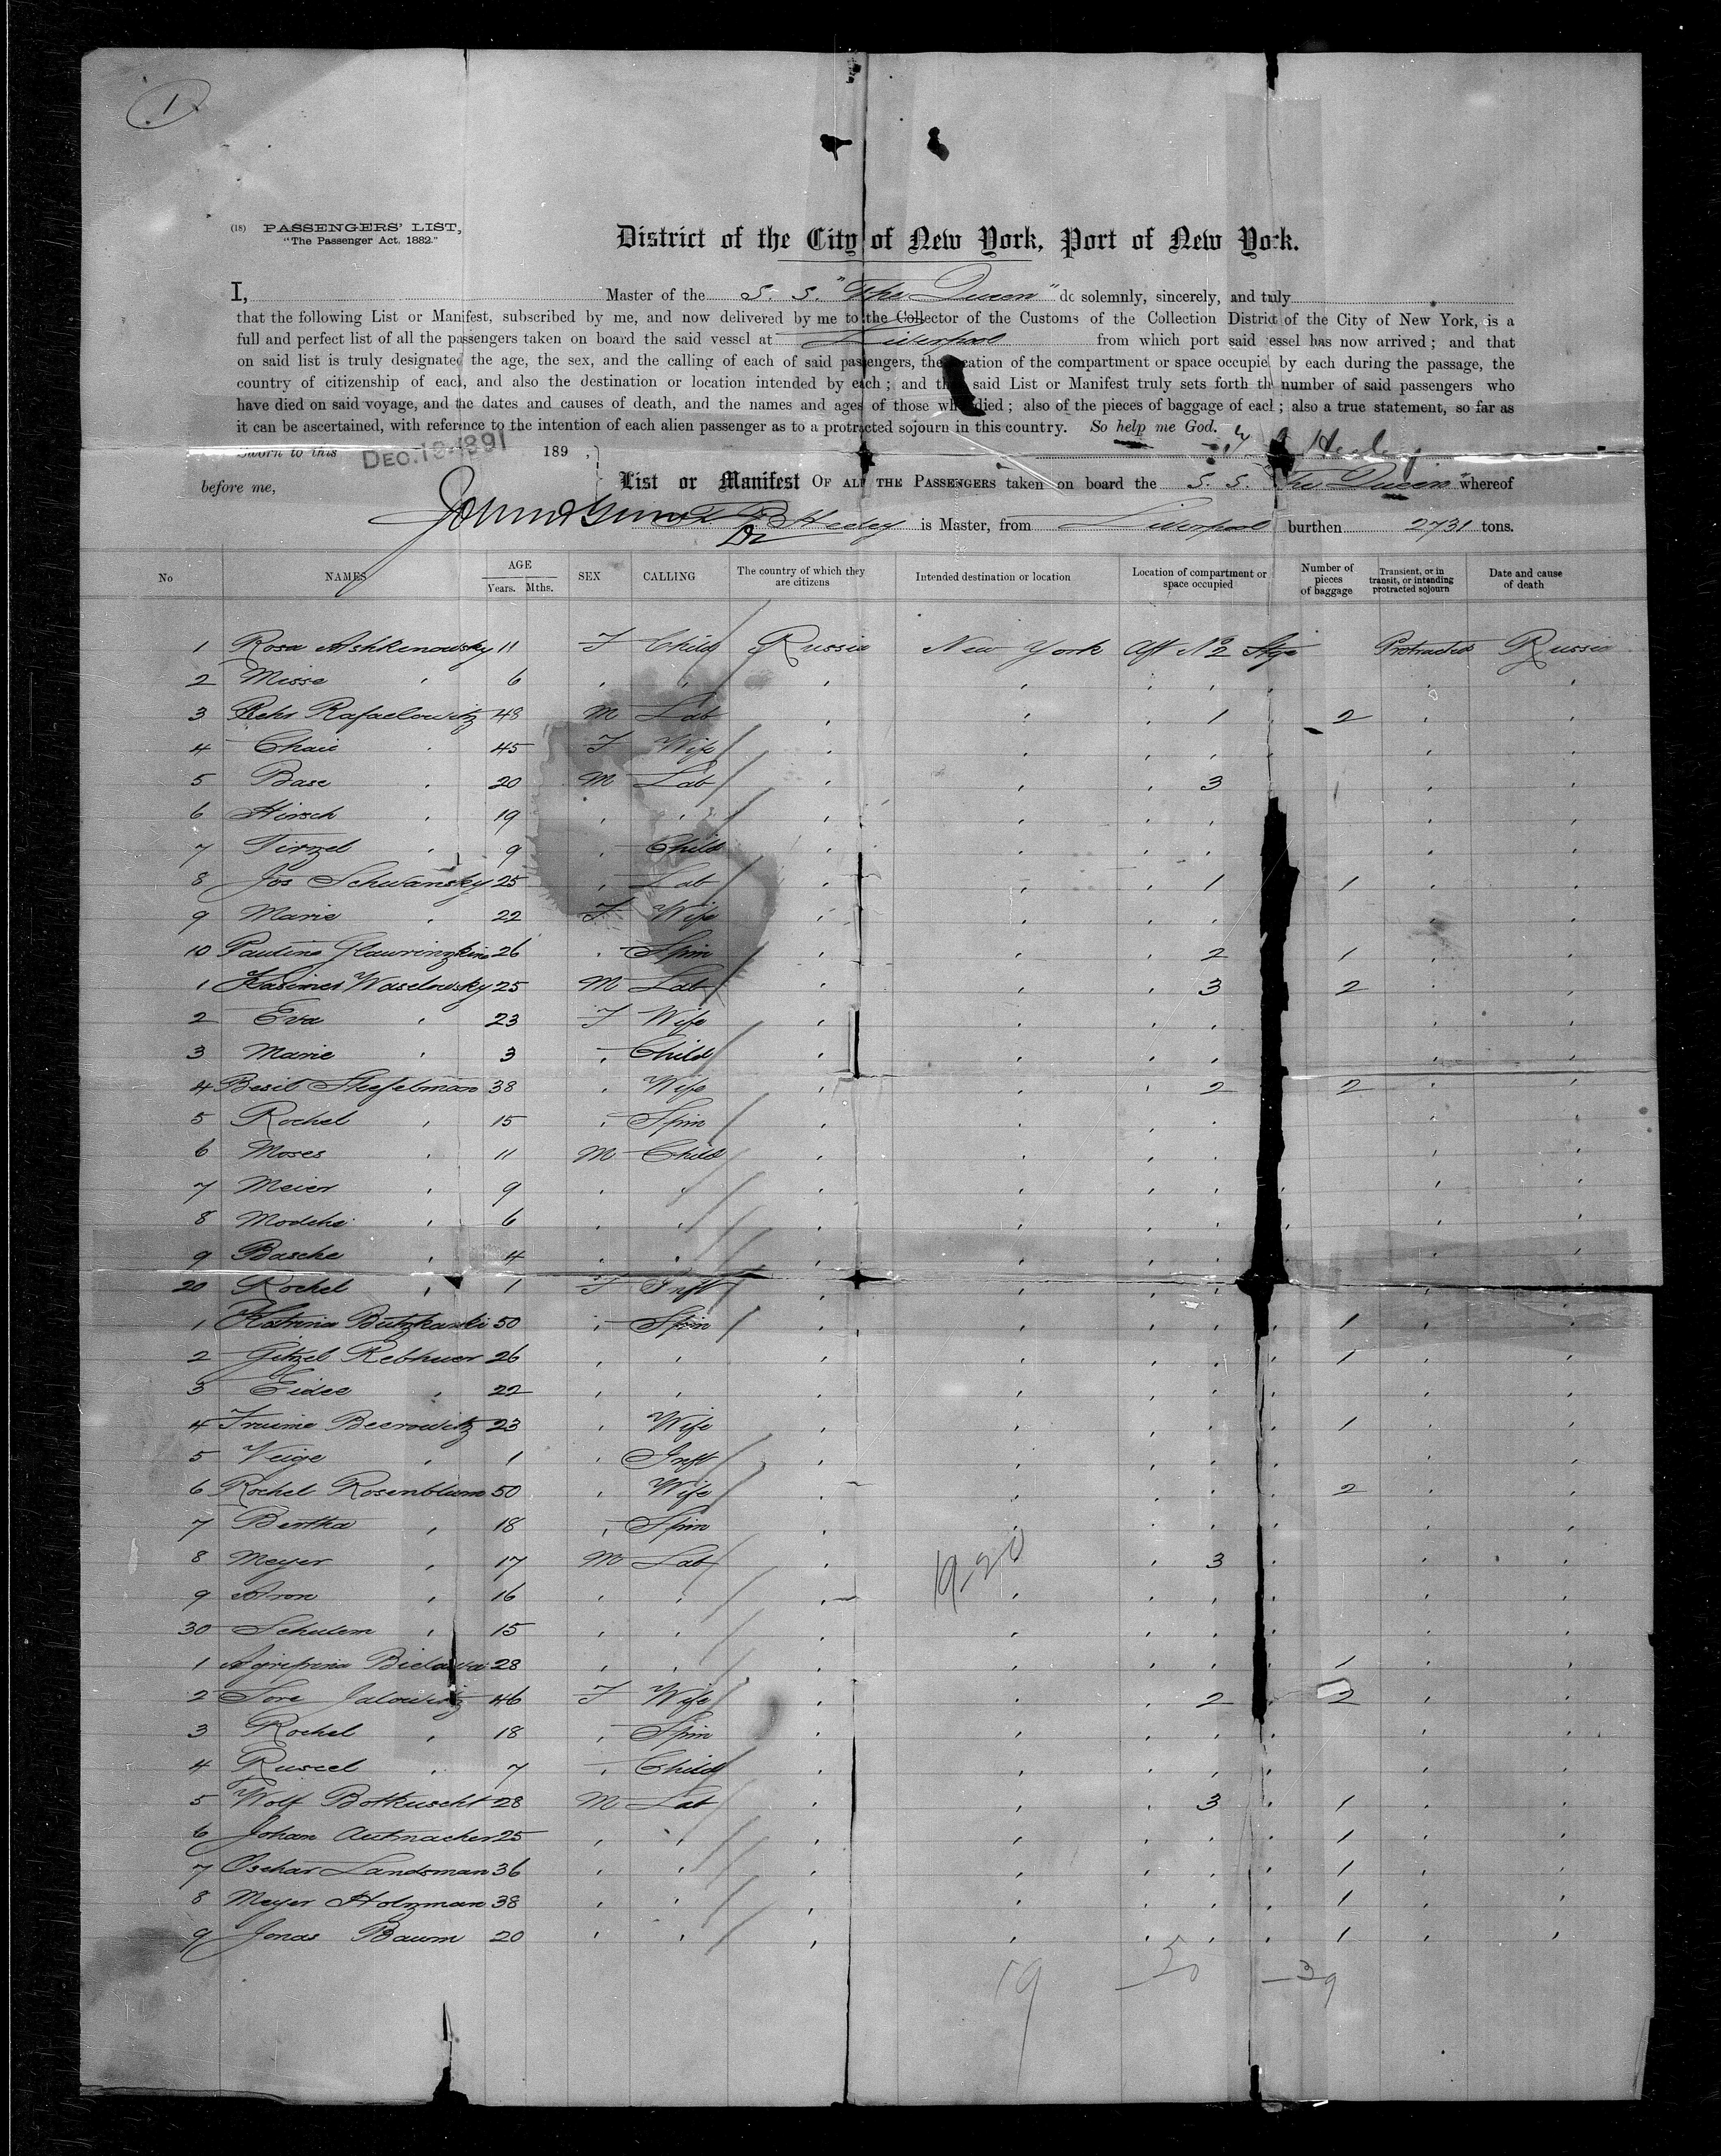 1
(18) PASSENGERS' LIST,
"The Passenger Act. 1882."
District of the City of New York, Port of New York.
I, Master of the S. S. "The Queen" do solemnly, sincerely, and truly
that the following List or Manifest, subscribed by me, and now delivered by me to the Collector of the Customs of the Collection District of the City of New York, is a
full and perfect list of all the passengers taken on board the said vessel at Liverpool from which port said vessel has now arrived; and that
on said list is truly designated the age, the sex, and the calling of each of said passengers, the location of the compartment or space occupied by each during the passage, the
country of citizenship of each, and also the destination or location intended by each; and that said List or Manifest truly sets forth the number of said passengers who
have died on said voyage, and the dates and causes of death, and the names and ages of those who died; also of the pieces of baggage of each; also a true statement, so far as
it can be ascertained, with reference to the intention of each alien passenger as to a protracted sojourn in this country. So help me God.
Heeley
Sworn to this DEC. 18 1891 189 ,
before me, List or Manifest OF ALL THE PASSENGERS taken on board the S. S. "The Queen" whereof
Heeley is Master, from Liverpool burthen 2731 tons.
No NAMES AGE Years. Mths. SEX CALLING The country of which they are citizens Intended destination or location Location of compartment or space occupied Number of pieces of baggage Transient, or in transit, or intending protracted sojourn Date and cause of death
1 Rosa Ashkenowsky 11 F Child Russia New York Aft No 2 Stge Protracted Russia
2 Misse " 6 " " " " " " " "
3 Rafaelowitz 48 M Lab " " " 1 " 2 " "
4 Chaie " 45 F Wife " " " " " " "
5 Base " 20 M Lab " " " 3 " "
6 Hirsch " 19 " " " " " " " "
7 Tirzel " 9 " Child " " " " " "
8 Jos Schwansky 25 " Lab " " " 1 1 " "
9 Marie " 22 F Wife " " " " " "
10 Pauline 26 " Spin " " " 2 1 " "
1 Kasimer Waselowsky 25 M Lab " " " 3 2 " "
2 Eva " 23 F Wife " " " " " "
3 Marie " 3 " Child " " " " " "
4 Besil Shefelman 38 " Wife " " " 2 2 " "
5 Rochel " 15 " Spin " " " " " "
6 Moses " 11 M Child " " " " " "
7 Meier " 9 " " " " " " " " "
8 Modche " 6 " " " " " " " " "
9 Basche " 4 " " " " " " " "
20 Rochel " 1 F Inft " " " " " "
1 Katrina Butzkauski 50 " Spin " " " " " 1 " "
2 Gitzel Rebhuer 26 " " " " " " " 1 " "
3 Eidee " 22 " " " " " " " " "
4 Beerowitz 23 " Wife " " " " " 1 " "
5 Veige " 1 " Inft " " " " " " "
6 Rochel Rosenblum 50 " Wife " " " " " 2 " "
7 Bertha " 18 " Spin " " " " " " "
8 Meyer " 17 M Lab " " " 3 " " "
9 Aron " 16 " " " " " " " " "
30 Schulem " 15 " " " " " " " " "
1 Agripina 28 " " " " " " " 1 " "
2 Sore Jalowitz 46 F Wife " " " 2 " 2 " "
3 Rochel " 18 " Spin " " " " " " "
4 Ruscel " 7 " Child " " " " " " "
5 Wolf Botkuscht 28 M Lab " " " 3 " 1 " "
6 Johan Autmacher 25 " " " " " " " 1 " "
7 Oschar Landsman 36 " " " " " " " 1 " "
8 Meyer Holzman 38 " " " " " " " 1 " "
9 Jonas Baum 20 " " " " " " " 1 " "